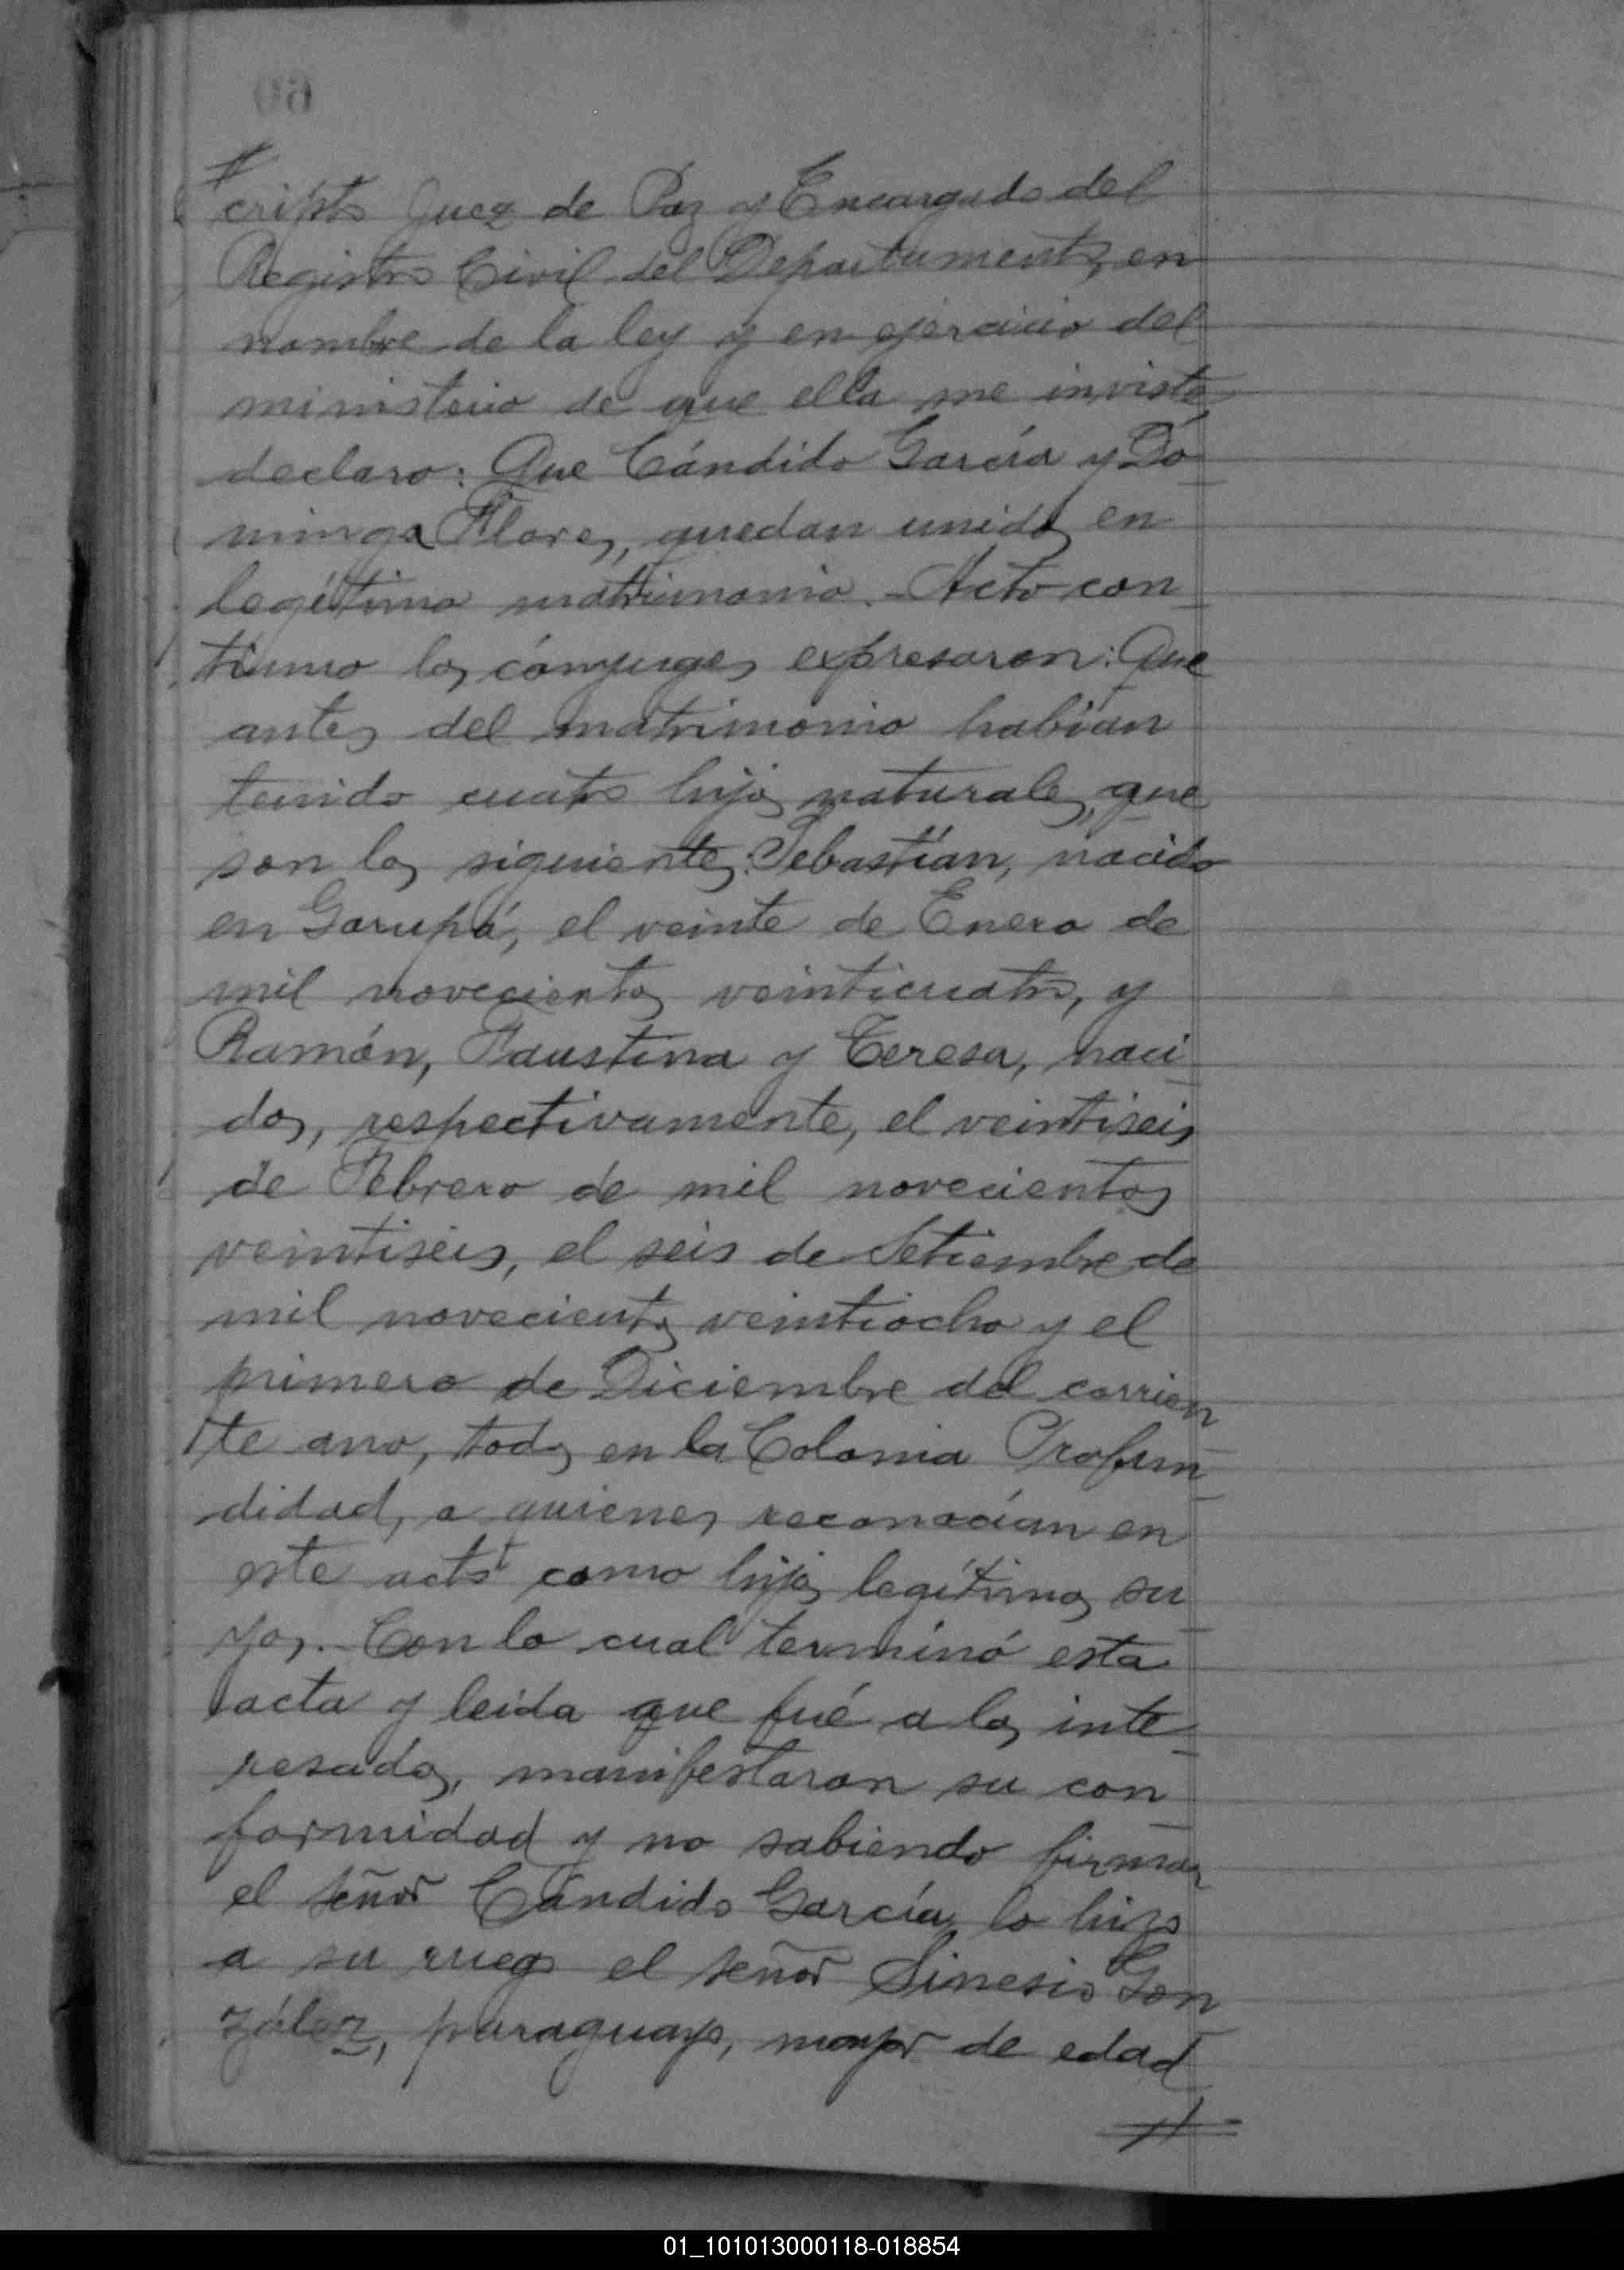 #
cripto Juez de Paz y Encargado del
Registro Civil del Departamento, en
nombre de la ley y en ejercicio del
ministerio de que ella me inviste,
declaro: Que Cándido García y Do
minga Flores, quedan unidos en
legítimo matrimonio.- Acto con
tínuo los cónyuges expresaron: Que
antes del matrimonio habían
tenido cuatro hijos naturales, que
son los siguientes: Sebastían, nacido
en Garupá, el veinte de Enero de
mil novecientos veinticuatro, y
Ramón, Faustina y Teresa, naci
dos, respectivamente, el veintiseis
de Febrero de mil novecientos
veintiseis, el seis de Setiembre de
mil novecientos veintiocho y el
primero de Diciembre del corrien
te ano, todos en la Colonia Profun
didad, a quienes reconocían en
este acto como hijos legítimos su
yos.- Con lo cual terminó esta
acta y leida que fué a los inte
resados, manifestaron su con
formidad y no sabiendo firmar
el señor Cándido García, lo hizo
a su ruego el señor Sinesio Gon
zález, paraguayo, mayor de edad
#
60
01_101013000118-018854